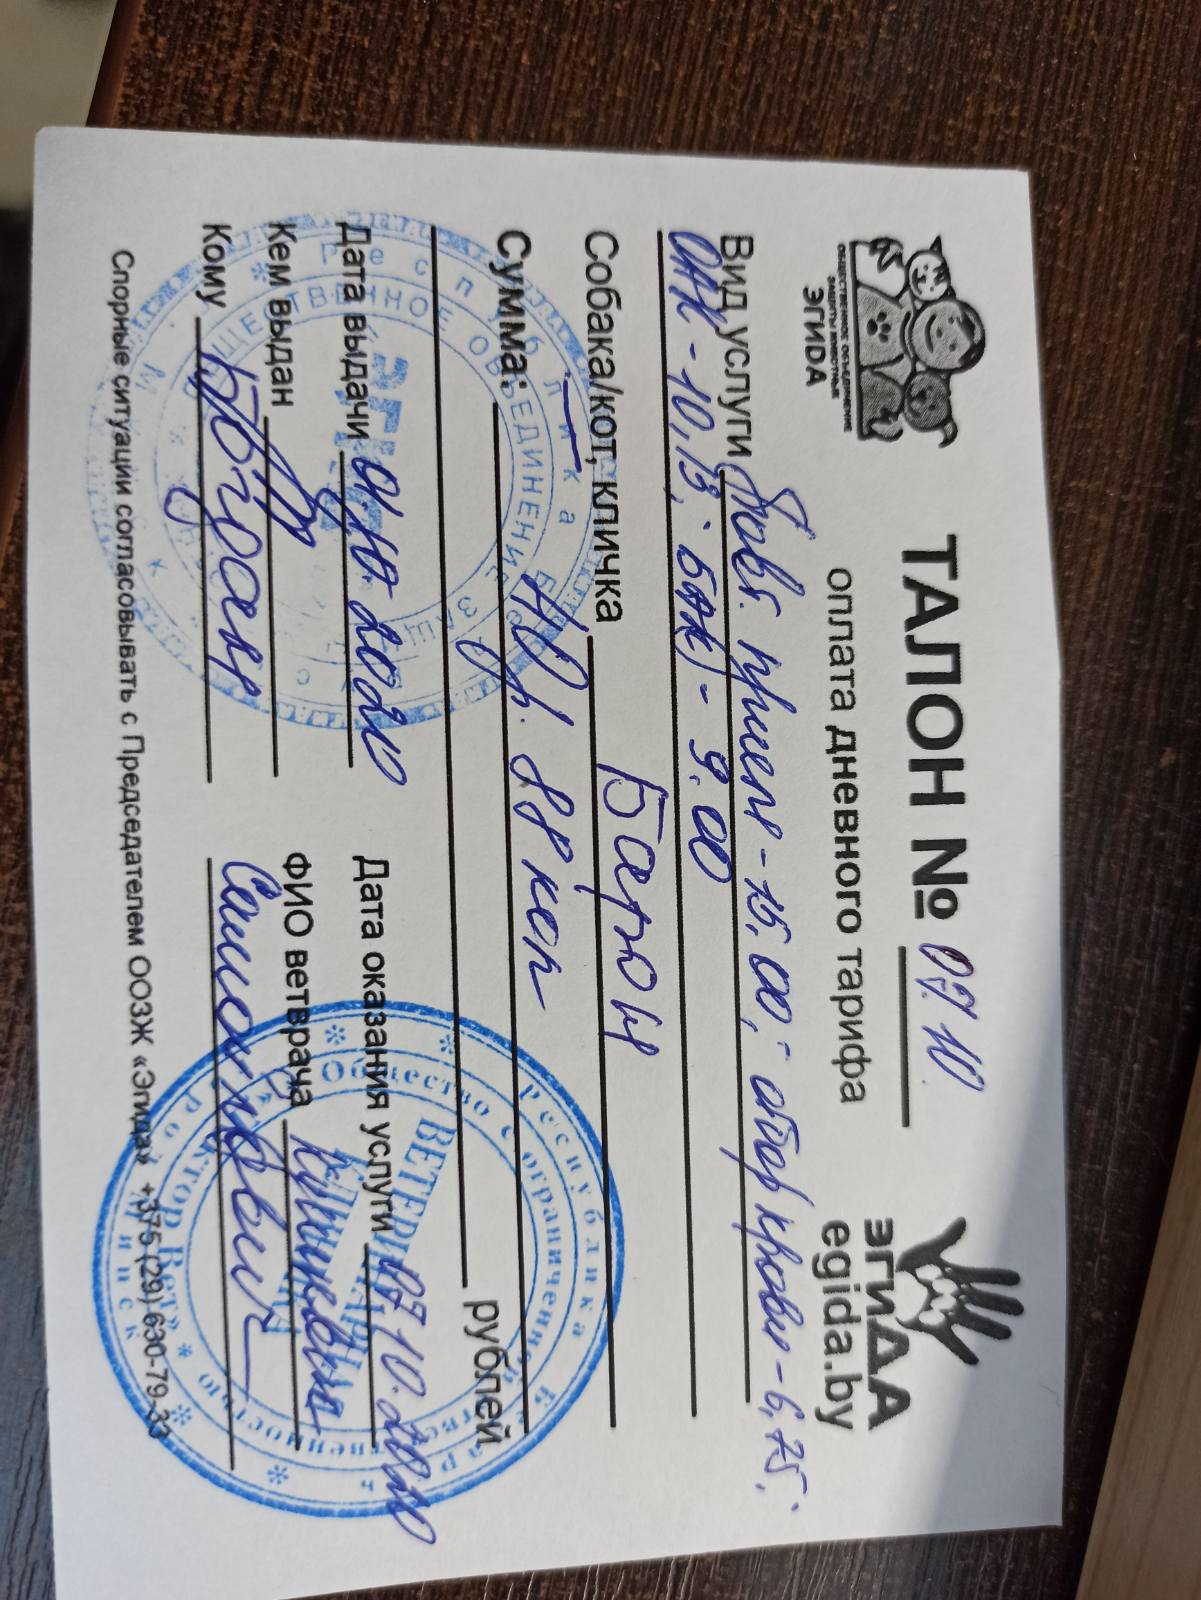 ОБЩЕСТВЕННОЕ ОБЪЕДИНЕНИЕ
ЗАЩИТЫ ЖИВОТНЫХ
ЭГИДА
ТАЛОН № 07.10.
оплата дневного тарифа
эгиДА
egida.by
Вид услуги Повт. прием - 15,00; отбор крови - 6,75;
ОАК - 10,13; БАК) - 9.00
Собака/кот, кличка Барон
Сумма: 40р. 88 коп
рублей
Дата выдачи 2020
Дата оказания услуги 07.10.2020
Кем выдан
ФИО ветврача
Кому
Спорные ситуации согласовывать с Председателем ООЗЖ «Эгида» +375 (29) 630-79-33